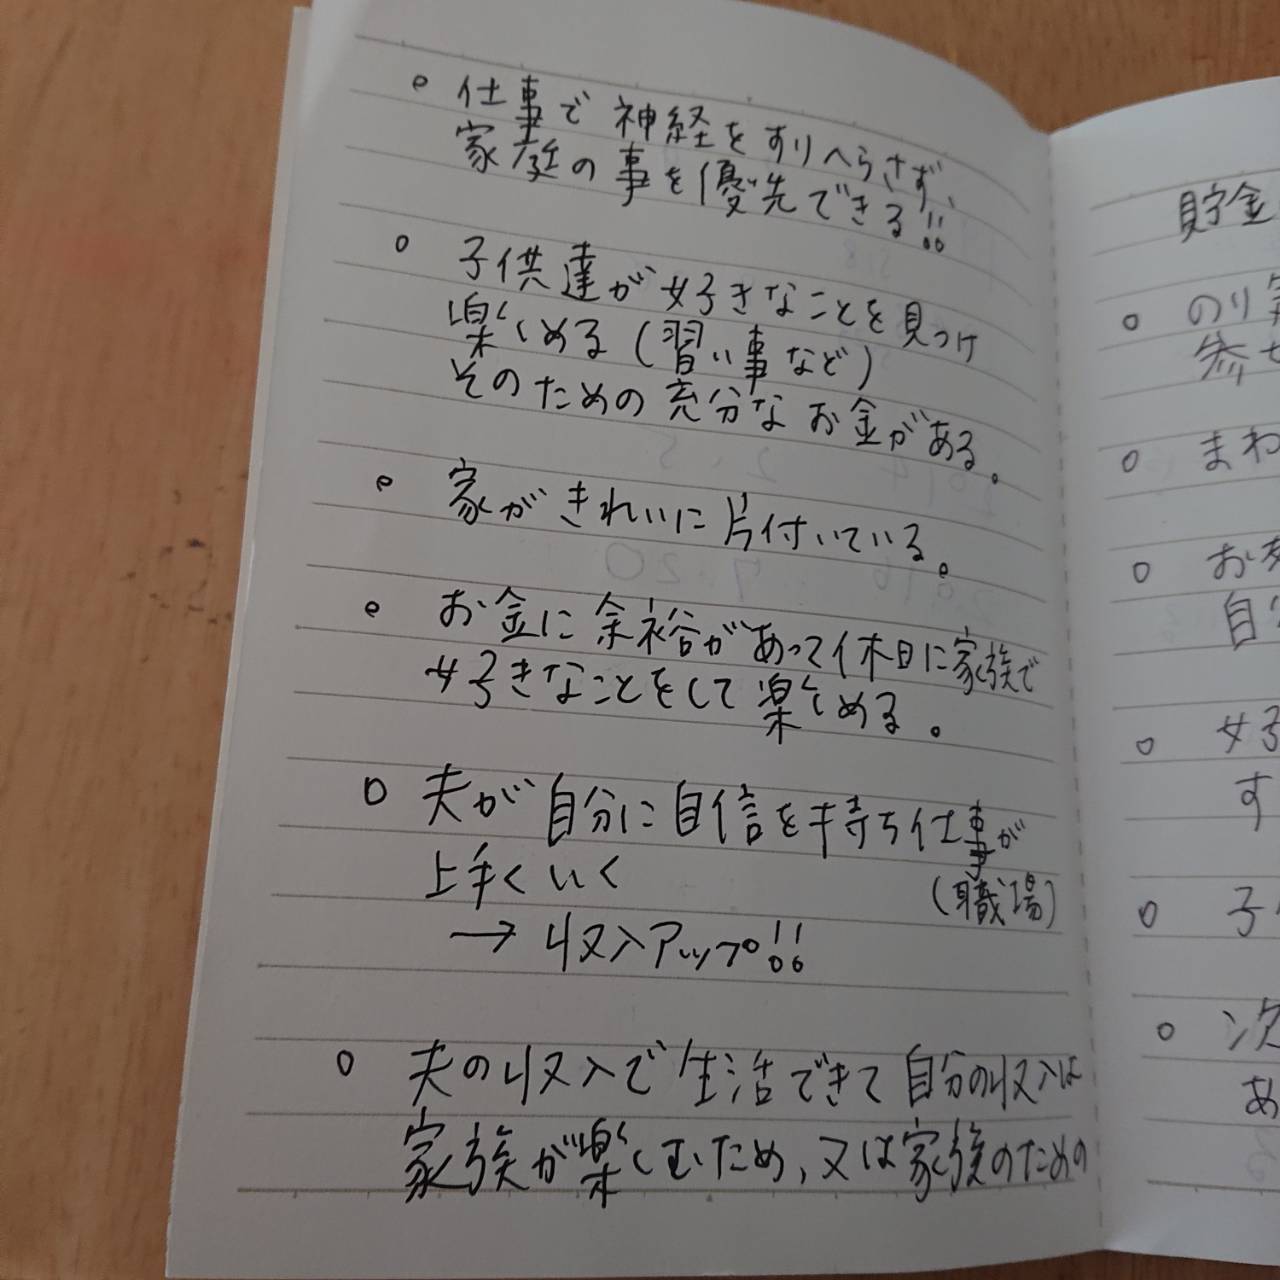 。仕事で神経をすりへらさず、
家庭の事を優先できる!!
。子供達が好きなことを見つけ
楽しめる(習い事など)
そのための充分なお金がある。
。家がきれいに片付いている。
。お金に余裕があって休日に家族で
好きなことをして楽しめる。
。夫が自分に自信を持ち仕事が
(職場)
上手くいく
→ 収入アップ!!
。夫の収入で生活できて自分の収入は
家族が楽しむため、又は家族のための
貯金
。のり
。まわ
。お
自分
。好
す
。子
。次
あ